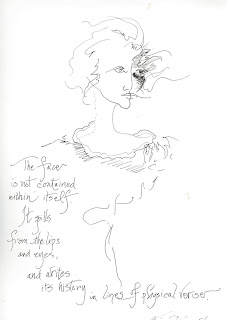 The face
is not contained
within itself.
It spills
from the lips
and eyes,
and writes
its history in lines of physical